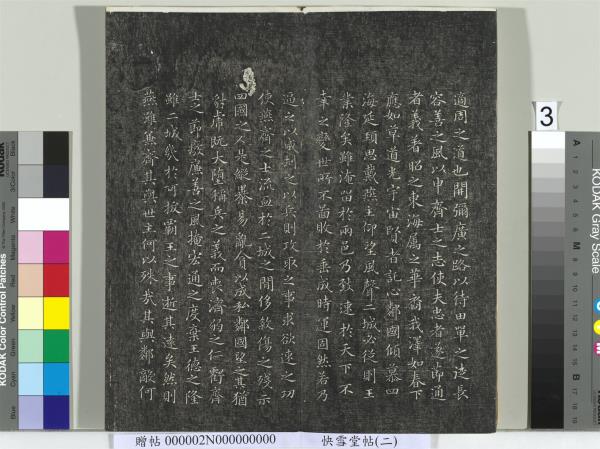 適周之道也開彌廣之路以待田單之徒長
容善之風以申齊士之志使夫忠者遂節通
者義著昭之東海屬之華裔我澤如春下
應如草道光宇宙賢者託心鄰國傾慕四
海延頸思戴燕主仰望風聲二城必從則王
業隆矣雖淹留於兩邑乃致速於天下不
幸之變世所不圖敗於垂成時運固然若乃
逼之以威劫之以兵則攻取之事求欲速之功
使燕齊之士流血於二城之間侈殺傷之殘示
四國之人是縱暴易亂貪以成私鄰國望之其猶
豺虎既大墮稱兵之義而喪濟弱之仁虧齊
士之節廢廉善之風掩宏通之度棄王德之隆
雖二城幾於可拔霸王之事逝其遠矣然則
燕雖兼齊其與世主何以殊哉其與鄰敵何
3
KODAK Color Control Patches
Blue
Cyan
Green
Yellow
Red
Magenta
White
3/Color
Black
KODAK Gray Scale
A 1 2 3 4 5 6 M 8 9 10 11 12 13 14 15 B 17 18 19
贈帖 000002N000000000 快雪堂帖(二)